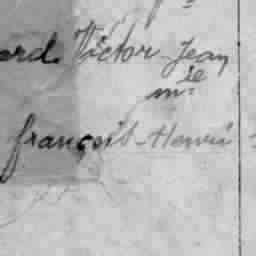 ard Victor Jean
m ie
françois-Henri